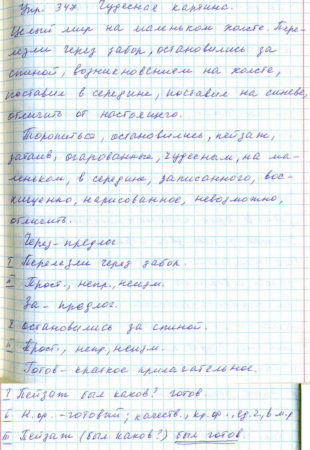 Упр. 347 Чудесная картина.
Целый мир на маленьком холсте. Пере-
лезли через забор, остановились за
спиной, возникновением на холсте,
поставил в середине, поставил на синеве,
отличить от настоящего.
Торопиться, остановились, пейзаж,
затаив, очарованные, чудесным, на ма-
леньком, в середине, записанного, вос-
хищенно, нарисованное, невозможно,
отличить.
Через - предлог.
I Перелезли через забор.
II Прост., непр., неизм.
За - предлог.
I остановились за спиной.
II Прост., непр., неизм.
Готов - краткое прилагательное.
I Пейзаж был каков? готов.
II Н.ф. - готовый; качеств., кр.ф., ед.ч, в м.р
III Пейзаж (был каков?) был готов.